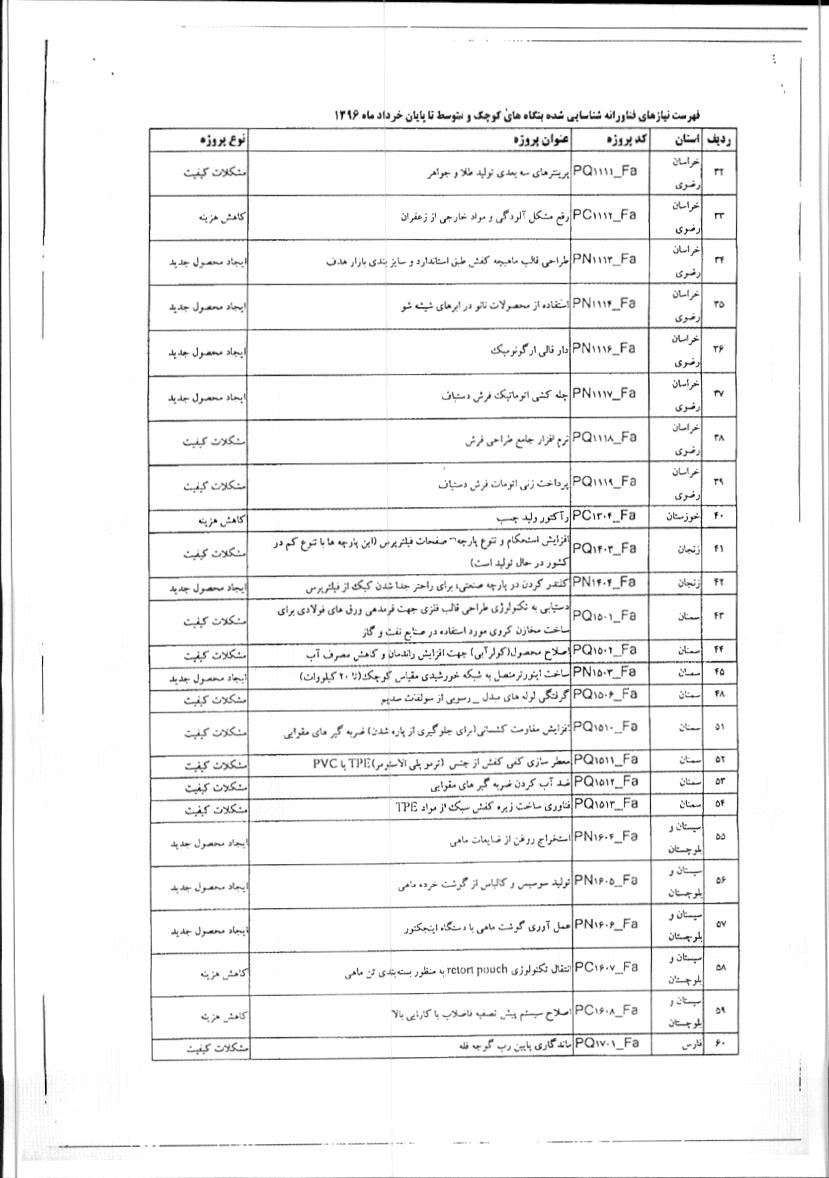 فهرست نیازهای فناورانه شناسایی شده بنگاه های کوچک و متوسط تا پایان خرداد ماه ۱۳۹۶
ردیف استان کد پروژه عنوان پروژه نوع پروژه
۳۲ خراسان رضوی PQ۱۱۱۱_Fa پرینترهای سه بعدی تولید طلا و جواهر مشکلات کیفیت
۳۳ خراسان رضوی PC۱۱۱۲_Fa رفع مشکل آلودگی و مواد خارجی از زعفران کاهش هزینه
۳۴ خراسان رضوی PN۱۱۱۳_Fa طراحی قالب ماهیچه کفش طبق استاندارد و سایز بندی بازار هدف ایجاد محصول جدید
۳۵ خراسان رضوی PN۱۱۱۴_Fa استفاده از محصولات نانو در ابرهای شیشه شو ایجاد محصول جدید
۳۶ خراسان رضوی PN۱۱۱۶_Fa دار قالی ارگونومیک ایجاد محصول جدید
۳۷ خراسان رضوی PN۱۱۱۷_Fa چله کشی اتوماتیک فرش دستباف ایجاد محصول جدید
۳۸ خراسان رضوی PQ۱۱۱۸_Fa نرم افزار جامع طراحی فرش مشکلات کیفیت
۳۹ خراسان رضوی PQ۱۱۱۹_Fa پرداخت زنی اتومات فرش دستباف مشکلات کیفیت
۴۰ خوزستان PC۱۳۰۴_Fa رآکتور ولید چسب کاهش هزینه
۴۱ زنجان PQ۱۴۰۳_Fa افزایش استحکام و تنوع پارچه صفحات فیلترپرس (این پارچه ها با تنوع کم در
کشور در حال تولید است) مشکلات کیفیت
۴۲ زنجان PN۱۴۰۴_Fa کلندر کردن در پارچه صنعتی، برای راحتر جدا شدن کیک از فیلترپرس ایجاد محصول جدید
۴۳ سمنان PQ۱۵۰۱_Fa دستیابی به تکنولوژی طراحی قالب فلزی جهت فرمدهی ورق های فولادی برای
ساخت مخازن کروی مورد استفاده در صنایع نفت و گاز مشکلات کیفیت
۴۴ سمنان PQ۱۵۰۲_Fa اصلاح محصول(کولرآبی) جهت افزایش راندمان و کاهش مصرف آب مشکلات کیفیت
۴۵ سمنان PN۱۵۰۳_Fa ساخت اینورترمتصل به شبکه خورشیدی مقیاس کوچک(تا ۲۰ کیلووات) ایجاد محصول جدید
۴۸ سمنان PQ۱۵۰۶_Fa گرفتگی لوله های مبدل _ رسوبی از سولفات سدیم مشکلات کیفیت
۵۱ سمنان PQ۱۵۱۰_Fa افزایش مقاومت کشسانی(برای جلوگیری از پاره شدن) ضربه گیر های مقوایی مشکلات کیفیت
۵۲ سمنان PQ۱۵۱۱_Fa معطر سازی کفی کفش از جنس (ترمو پلی الاستومر)TPE یا PVC مشکلات کیفیت
۵۳ سمنان PQ۱۵۱۲_Fa ضد آب کردن ضربه گیر های مقوایی مشکلات کیفیت
۵۴ سمنان PQ۱۵۱۳_Fa فناوری ساخت زیره کفش سبک از مواد TPE مشکلات کیفیت
۵۵ سیستان و بلوچستان PN۱۶۰۴_Fa استخراج روغن از ضایعات ماهی ایجاد محصول جدید
۵۶ سیستان و بلوچستان PN۱۶۰۵_Fa تولید سوسیس و کالباس از گوشت خرده ماهی ایجاد محصول جدید
۵۷ سیستان و بلوچستان PN۱۶۰۶_Fa عمل آوری گوشت ماهی با دستگاه اینجکتور ایجاد محصول جدید
۵۸ سیستان و بلوچستان PC۱۶۰۷_Fa انتقال تکنولوژی retort pouch به منظور بسته‌بندی تن ماهی کاهش هزینه
۵۹ سیستان و بلوچستان PC۱۶۰۸_Fa اصلاح سیستم پیش تصفیه فاضلاب با کارایی بالا کاهش هزینه
۶۰ فارس PQ۱۷۰۱_Fa ماندگاری پایین رب گوجه فله مشکلات کیفیت